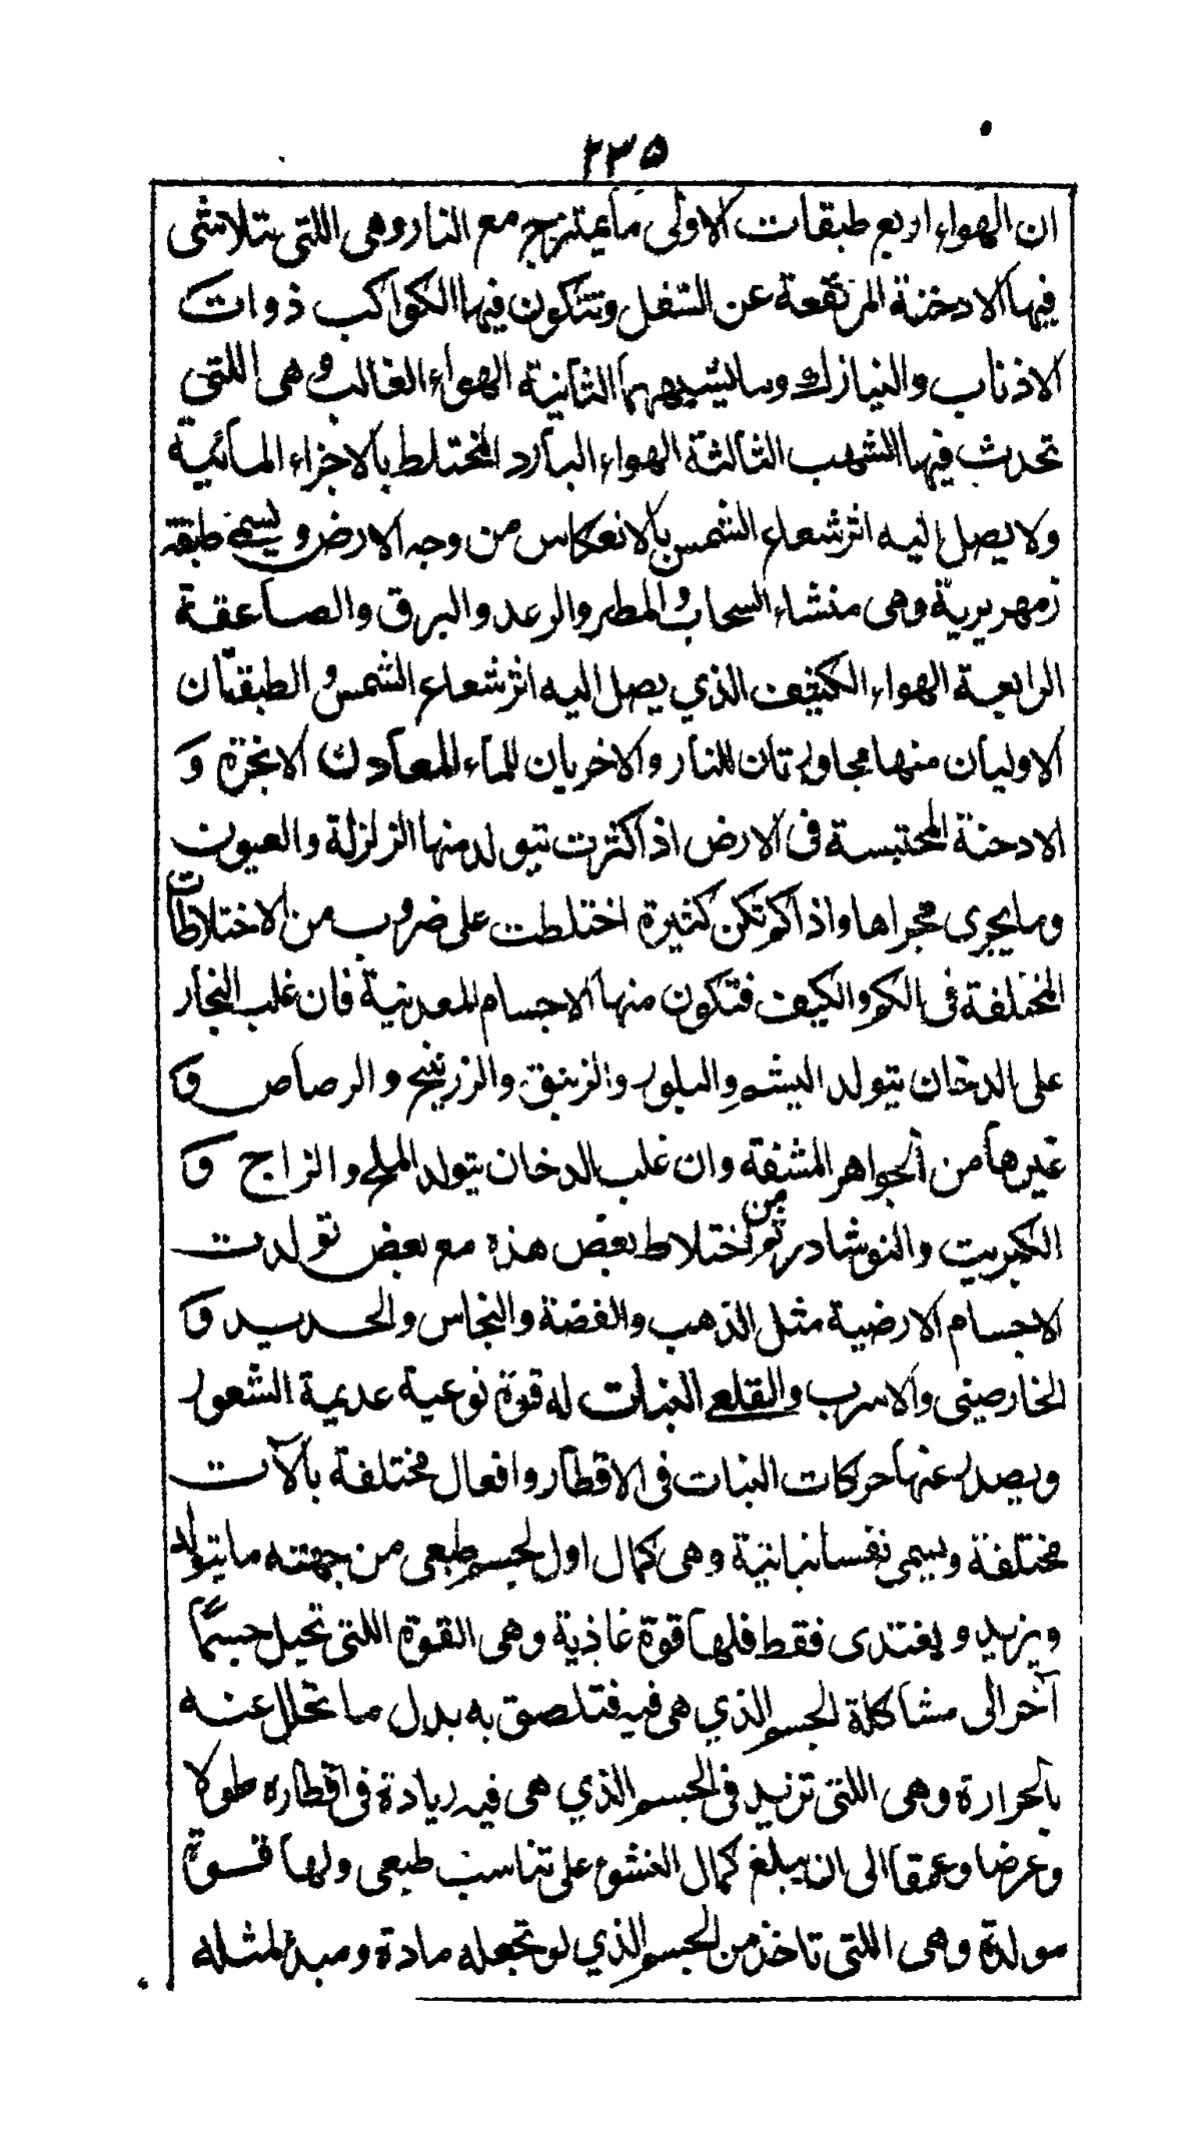 ٢٣٥
ان الهواء اربع طبقات الاولى ما يمتزج مع النار وهى اللتى يتلاشى
فيها الادخنة المرتفعة عن السفل وتتكون فيها الكواكب ذوات
الاذناب والنيازك وما يشبهها الثانية الهواء الغالب و هى اللتى
تحدث فيها الشهب الثالثة الهواء البارد المختلط بالاجزاء المائية
ولا يصل اليه اثر شعاع الشمس بالانعكاس من وجه الارض و يسمى طبقة
زمهريرية وهى منشاء السحاب و المطر والرعد والبرق والصاعقة
الرابعة الهواء الكثيف الذي يصل اليه اثر شعاع الشمس و الطبقتان
الاوليان منها مجاورتان للنار والاخريان للماء المعادن الابخرة و
الادخنة المحتبسة فى الارض اذا كثرت يتولد منها الزلزلة والعيون
وما يجرى مجراها واذا لم تكن كثيرة اختلطت على ضروب من الاختلاطات
المختلفة فى الكم والكيف فتكون منها الاجسام المعدنية فان غلب البخار
على الدخان يتولد اليشم والبلور والزيبق والزرنيخ والرصاص و
غيرها من الجواهر المشفة وان غلب الدخان يتولد الملح والزاج و
الكبريت والنوشادر ثم من اختلاط بعض هذه مع بعض تولدت
الاجسام الارضية مثل الذهب والفضة والنحاس والحديد و
الخارصينى والاسرب والقلعى النبات له قوة نوعية عديمة الشعور
ويصدر عنها حركات النبات فى الاقطار وافعال مختلفة بالآت
مختلفة ويسمى نفسا نباتية وهى كمال اول لجسم طبعى من جهته ما يتولد
ويزيد و يغتدى فقط فلها قوة غاذية وهى القوة اللتى تحيل جسمًا
آخر الى مشاكلة الجسم الذي هى فيه فتلصق به بدل ما تحلل عنه
بالحرارة وهى اللتى تزيد فى الجسم الذي هى فيه زيادة فى اقطاره طولا
وعرضا وعمقا الى ان يبلغ كمال النشوء على تناسب طبعى ولها قوة
مولدة وهى اللتى تاخذ من الجسم الذي لو تجعله مادة ومبدء لمثله